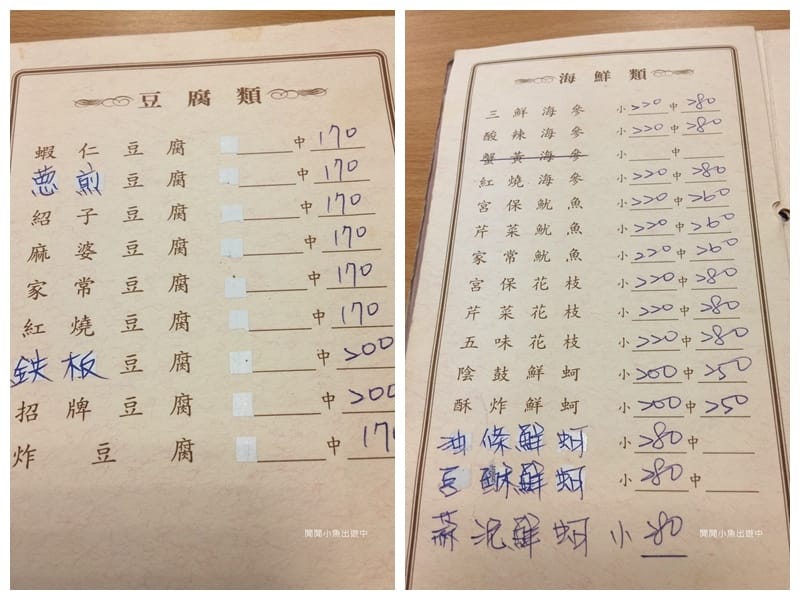 豆腐類
蝦仁豆腐 中 170
蔥煎豆腐 中 170
紹子豆腐 中 170
麻婆豆腐 中 170
家常豆腐 中 170
紅燒豆腐 中 170
鉄板豆腐 中 200
招牌豆腐 中 200
炸豆腐 中 170
閒閒小魚出遊中
海鮮類
三鮮海參 小 220 中 280
酸辣海參 小 220 中 280
蟹黃海參 小 中
紅燒海參 小 220 中 280
宮保魷魚 小 220 中 260
芹菜魷魚 小 220 中 260
家常魷魚 小 220 中 260
宮保花枝 小 220 中 280
芹菜花枝 小 220 中 280
五味花枝 小 220 中 280
陰鼓鮮蚵 小 200 中 250
酥炸鮮蚵 小 200 中 250
油條鮮蚵 小 280 中
豆酥鮮蚵 小 280 中
蒜泥鮮蚵 小 280
閒閒小魚出遊中